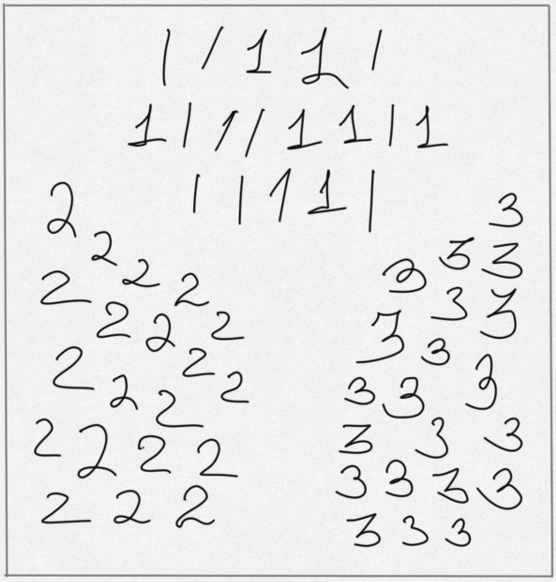 1 1 1 1 1
1 1 1 1 1 1 1 1
1 1 1 1 1
2
2
2
2 2
2 2 2
2 2
2 2
2
2 2 2 2
2 2 2
3
3 3
3
3 3
3 3
3 3 3
3 3 3
3 3 3 3
3 3 3